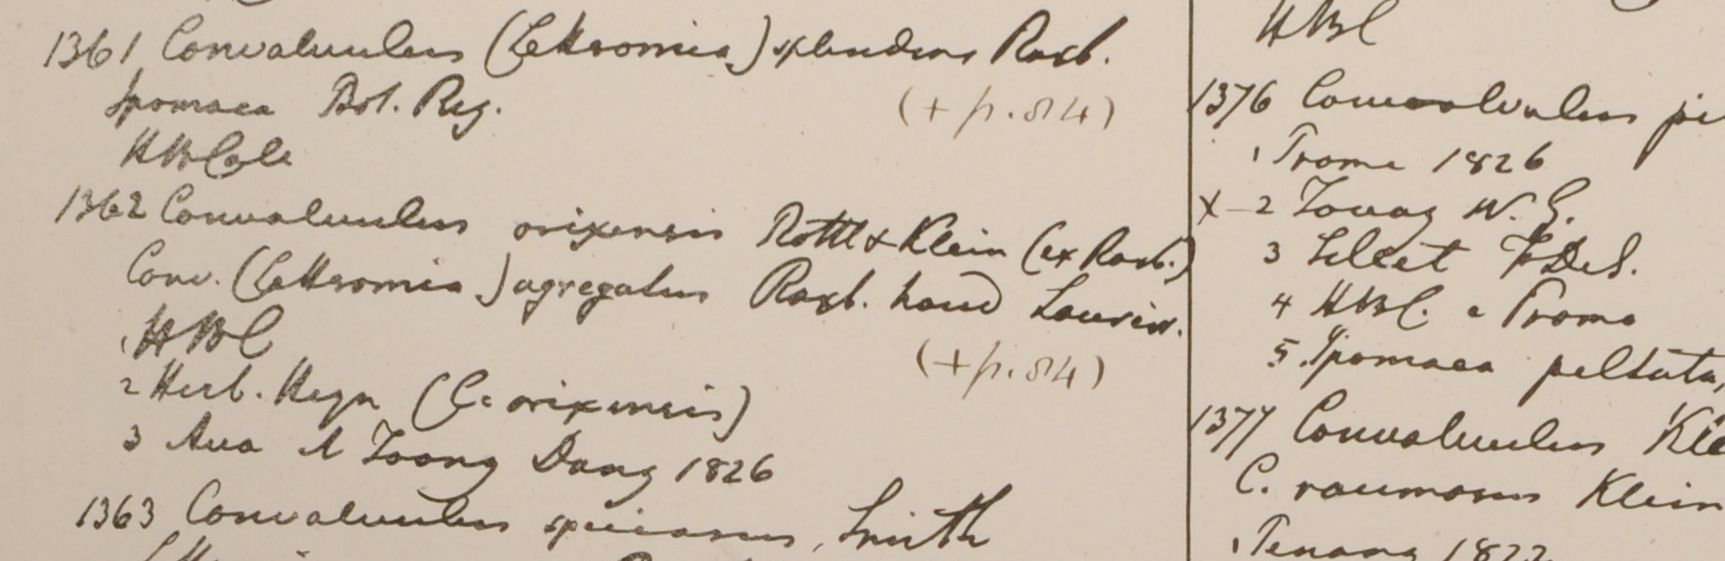 1361 Convolvulus (Lettsomia) splendens Roxb.
Ipomaea Bot. Reg. (+ p. 84)
HBCalc
1362 Convolvulus orixensis Rottl & Klein (ex Roxb.)
Conv. (Lettsomia) agregatus Roxb. haud Loureir.
1 HBC (+ p. 84)
2 Herb. Heyn (C. orixensis)
3 Ava Toong Dong 1826
1363 Convolvulus speciosus, Smith
HBC
1376 Convolvulus pi
1 Prome 1826
x 2 Tovay W. G.
3 Silhet F. De S.
4 HBC. e Prome
5. Ipomaea peltata,
1377 Convolvulus Kle
C. racemosus Klein
1 Penang 1822